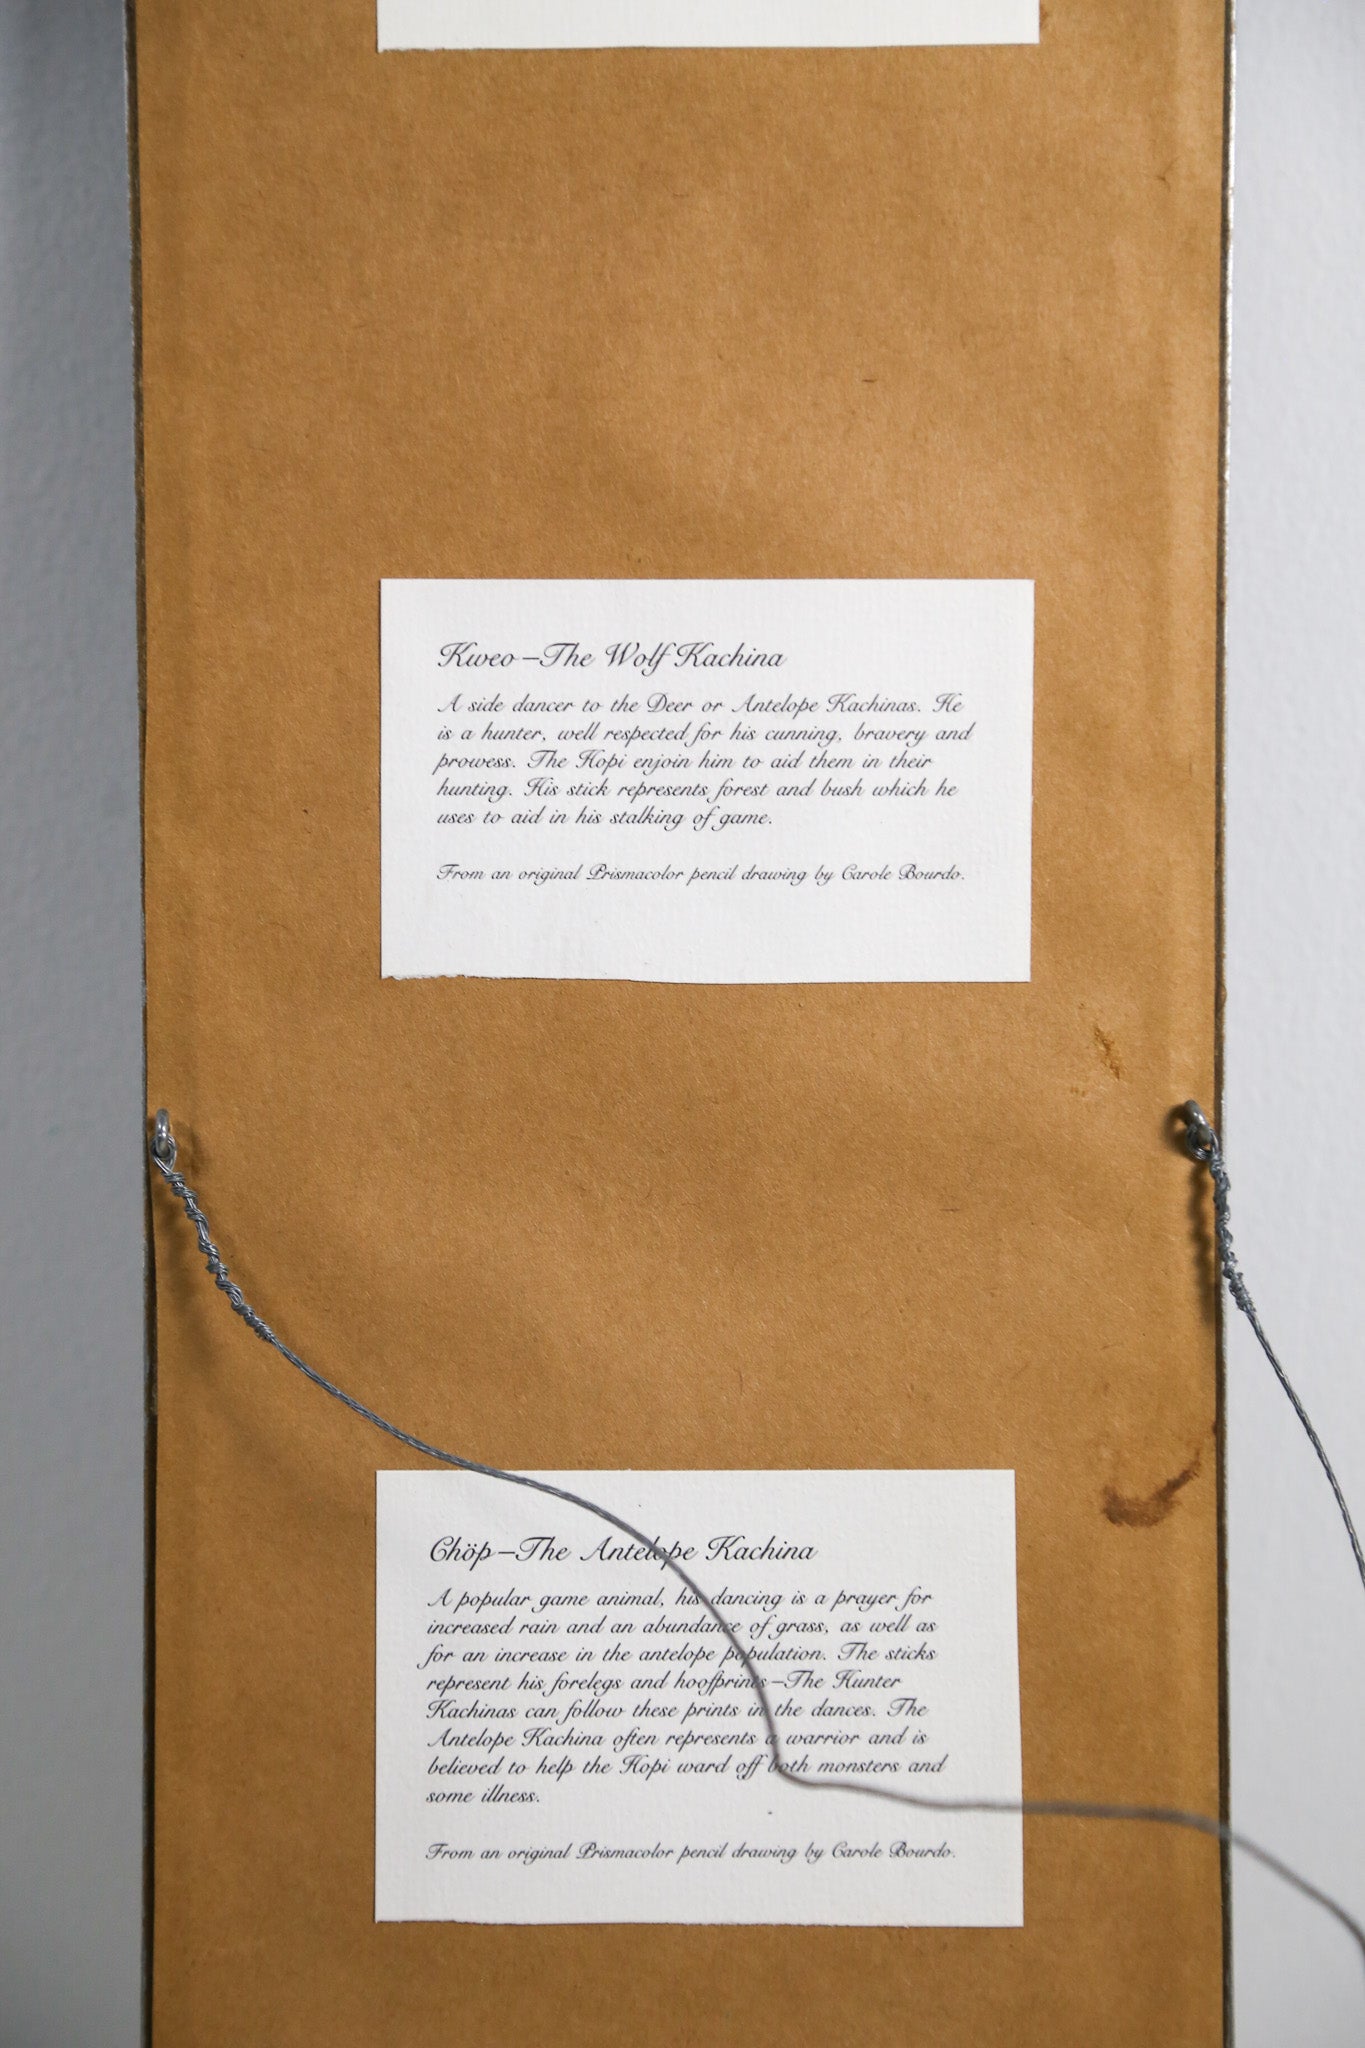 Kweo–The Wolf Kachina
A side dancer to the Deer or Antelope Kachinas. He
is a hunter, well respected for his cunning, bravery and
prowess. The Hopi enjoin him to aid them in their
hunting. His stick represents forest and bush which he
uses to aid in his stalking of game.
From an original Prismacolor pencil drawing by Carole Bourdo.
Chöp–The Antelope Kachina
A popular game animal, his dancing is a prayer for
increased rain and an abundance of grass, as well as
for an increase in the antelope population. The sticks
represent his forelegs and hoofprints–The Hunter
Kachinas can follow these prints in the dances. The
Antelope Kachina often represents a warrior and is
believed to help the Hopi ward off both monsters and
some illness.
From an original Prismacolor pencil drawing by Carole Bourdo.